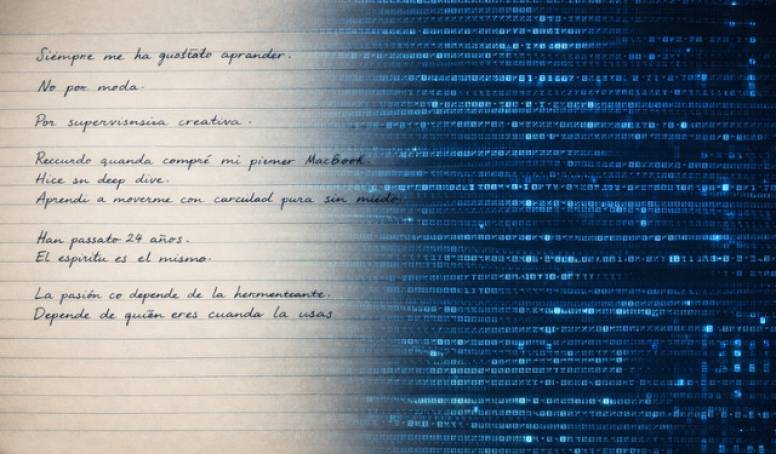 Siempre me ha gustato aprander.
No por moda.
Por supervisnsiva creativa.
Reccurdo quanda compré mi piemer MacBook.
Hice sn deep dive.
Aprendi a moverme con carculad pura sin miedo
Han passato 24 años.
El espiritu es el mismo.
La pasión co depende de la hermenteante.
Depende de quiēn eres cuanda la usas